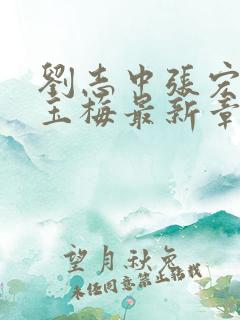 劉志中張宏
玉梅最新章
望月秋兔
未經同意禁止轉載